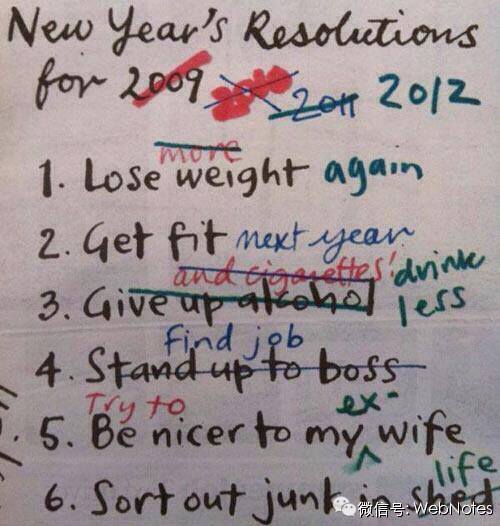 New Year's Resolutions
for 2009 2011 2012
more
1. Lose weight again
2. Get fit next year
and cigarettes! drink
3. Give up alcohol less
Find job
4. Stand up to boss
Try to ex-
5. Be nicer to my wife
life
6. Sort out junk in shed
微信号: WebNotes